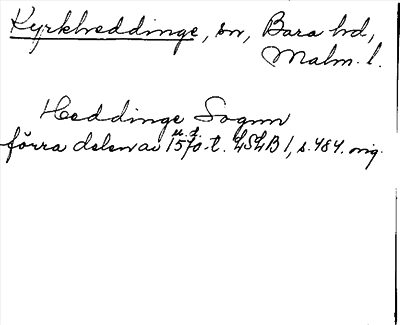 Kyrkheddinge, sn, Bara hd,
Malm. l.
Heddinge Sognn
u. d.
förra delen av 1570-t. LSLB 1, s. 484. orig.